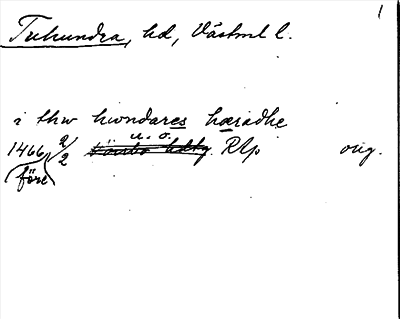 1
Tuhundra, hd, Västml l.
i thw hwndares hæradhe
u. o.
1466 2/2 RAp orig.
före